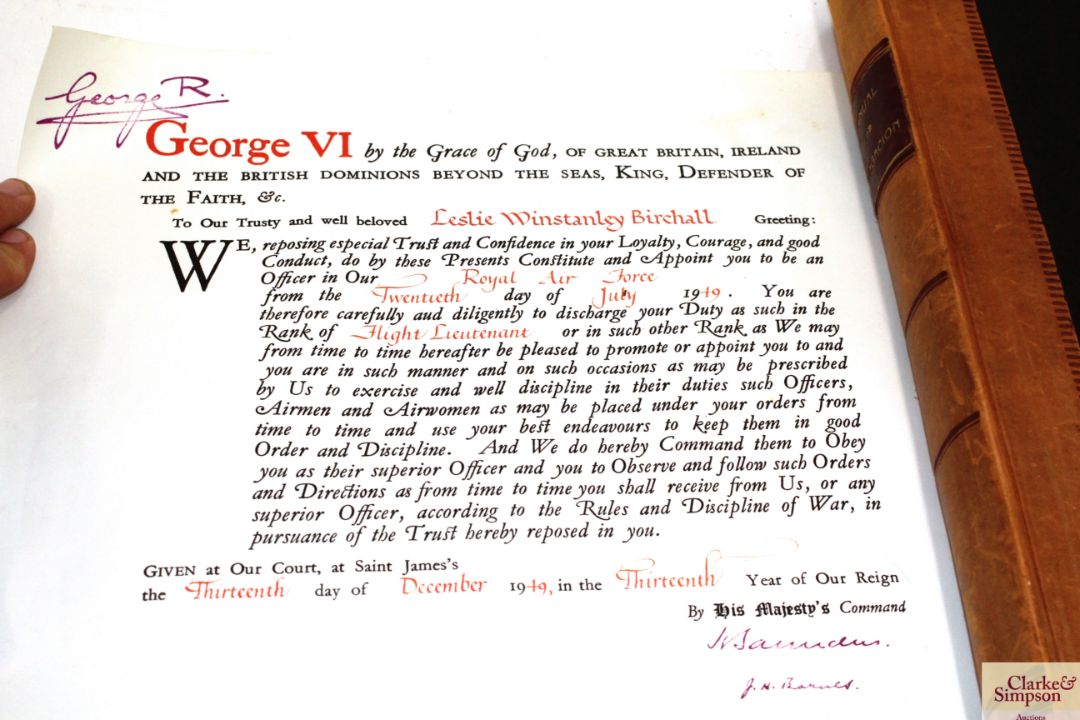 George R.
George VI by the Grace of God, OF GREAT BRITAIN, IRELAND
AND THE BRITISH DOMINIONS BEYOND THE SEAS, KING, DEFENDER OF
THE FAITH, &c.
To Our Trusty and well beloved Leslie Winstanley Birchall Greeting:
WE, reposing especial Trust and Confidence in your Loyalty, Courage, and good
Conduct, do by these Presents Constitute and Appoint you to be an
Officer in Our Royal Air Force
from the Twentieth day of July 1949. You are
therefore carefully and diligently to discharge your Duty as such in the
Rank of Flight Lieutenant or in such other Rank as We may
from time to time hereafter be pleased to promote or appoint you to and
you are in such manner and on such occasions as may be prescribed
by Us to exercise and well discipline in their duties such Officers,
Airmen and Airwomen as may be placed under your orders from
time to time and use your best endeavours to keep them in good
Order and Discipline. And We do hereby Command them to Obey
you as their superior Officer and you to Observe and follow such Orders
and Directions as from time to time you shall receive from Us, or any
superior Officer, according to the Rules and Discipline of War, in
pursuance of the Trust hereby reposed in you.
GIVEN at Our Court, at Saint James's
the Thirteenth day of December 1949, in the Thirteenth Year of Our Reign
By His Majesty's Command
J. H. Barnes.
OF
Clarke &
Simpson
Auctions